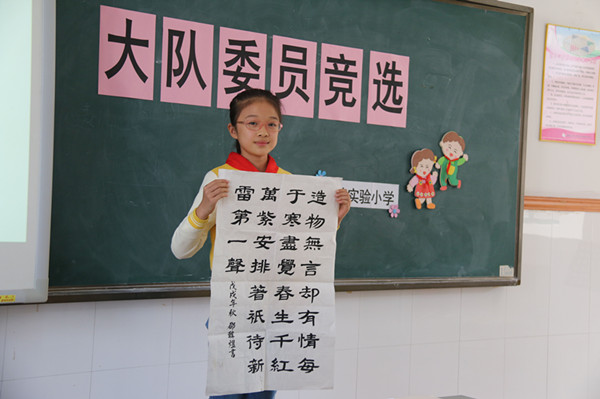 大队委员竞选
实验小学
造物無言却有情每
于寒盡覺春生千紅
萬紫安排著祇待新
雷第一聲
戊戌年秋 書